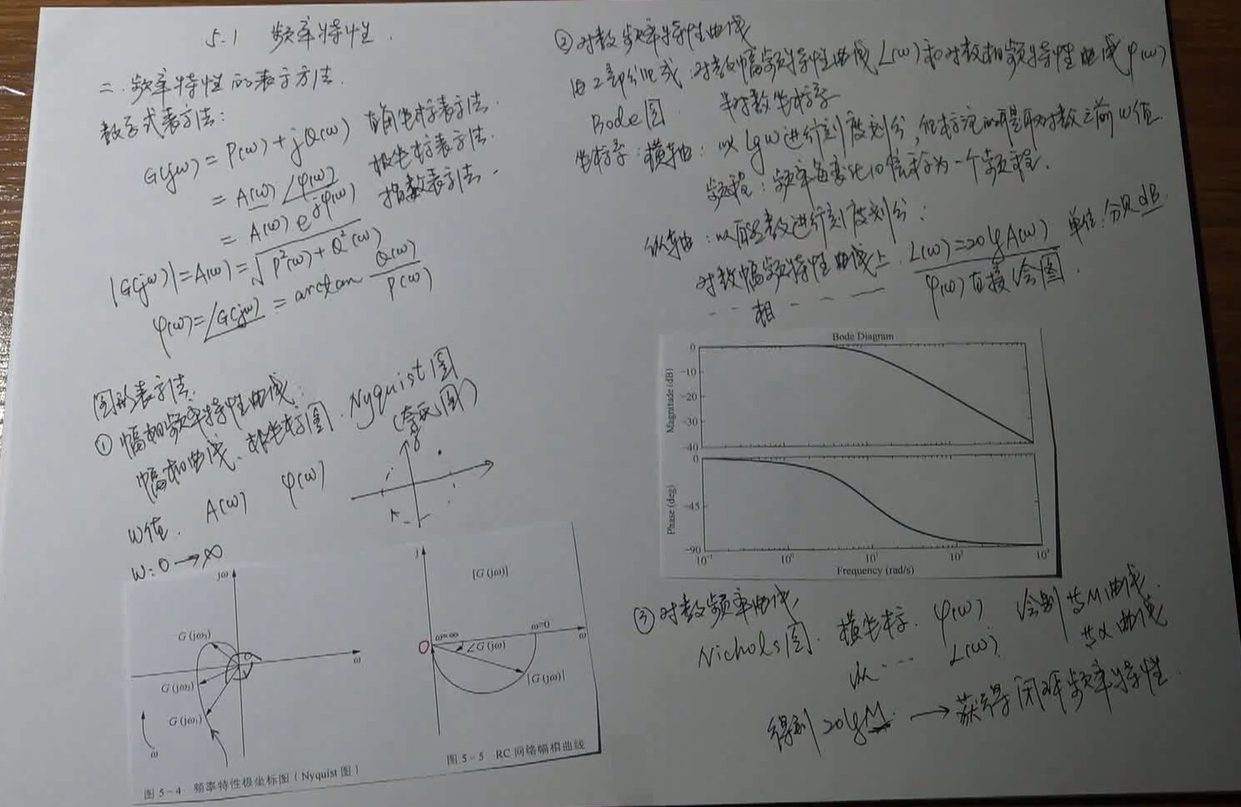 5.1 频率特性.
二. 频率特性的表示方法.
数学式表示法:
G(jω) = P(ω) + jQ(ω) 直角坐标表示法.
= A(ω) ∠φ(ω) 极坐标表示法.
= A(ω) e^{jφ(ω)} 指数表示法.
|G(jω)| = A(ω) = √(P²(ω) + Q²(ω))
φ(ω) = ∠G(jω) = arctan Q(ω)/P(ω)
图形表示法.
① 幅相频率特性曲线:
幅相曲线、极坐标图、Nyquist图
(奈氏图)
ω值. A(ω) φ(ω)
j
ω: 0 → ∞
jω
G(jω₃)
G(jω₂)
G(jω₁)
ω
ω
图 5-4 频率特性极坐标图(Nyquist 图)
j
[G(jω)]
0
ω=∞
ω=0
∠G(jω)
|G(jω)|
ω
图 5-5 RC 网络幅相曲线
② 对数频率特性曲线
由2部分组成:对数幅频特性曲线L(ω)和对数相频特性曲线φ(ω)
Bode图. 半对数坐标系
坐标系:横轴:以lgω进行刻度划分,但标注的是取对数之前ω值.
频程:频率每变化10倍称为一个频程.
纵轴:以进行刻度划分:
对数幅频特性曲线上. L(ω)=20lgA(ω) 单位:分贝dB
‥ 相 ‥ — — φ(ω)直接绘图.
Bode Diagram
Magnitude (dB)
0
-10
-20
-30
-40
Phase (deg)
0
-45
-90
10⁻¹ 10⁰ 10¹ 10² 10³
Frequency (rad/s)
③ 对数频率曲线
Nichols图. 横坐标. φ(ω) 绘制 等M曲线.
从 ‥ L(ω) 等α曲线
得到 20lgM → 获得闭环频率特性.